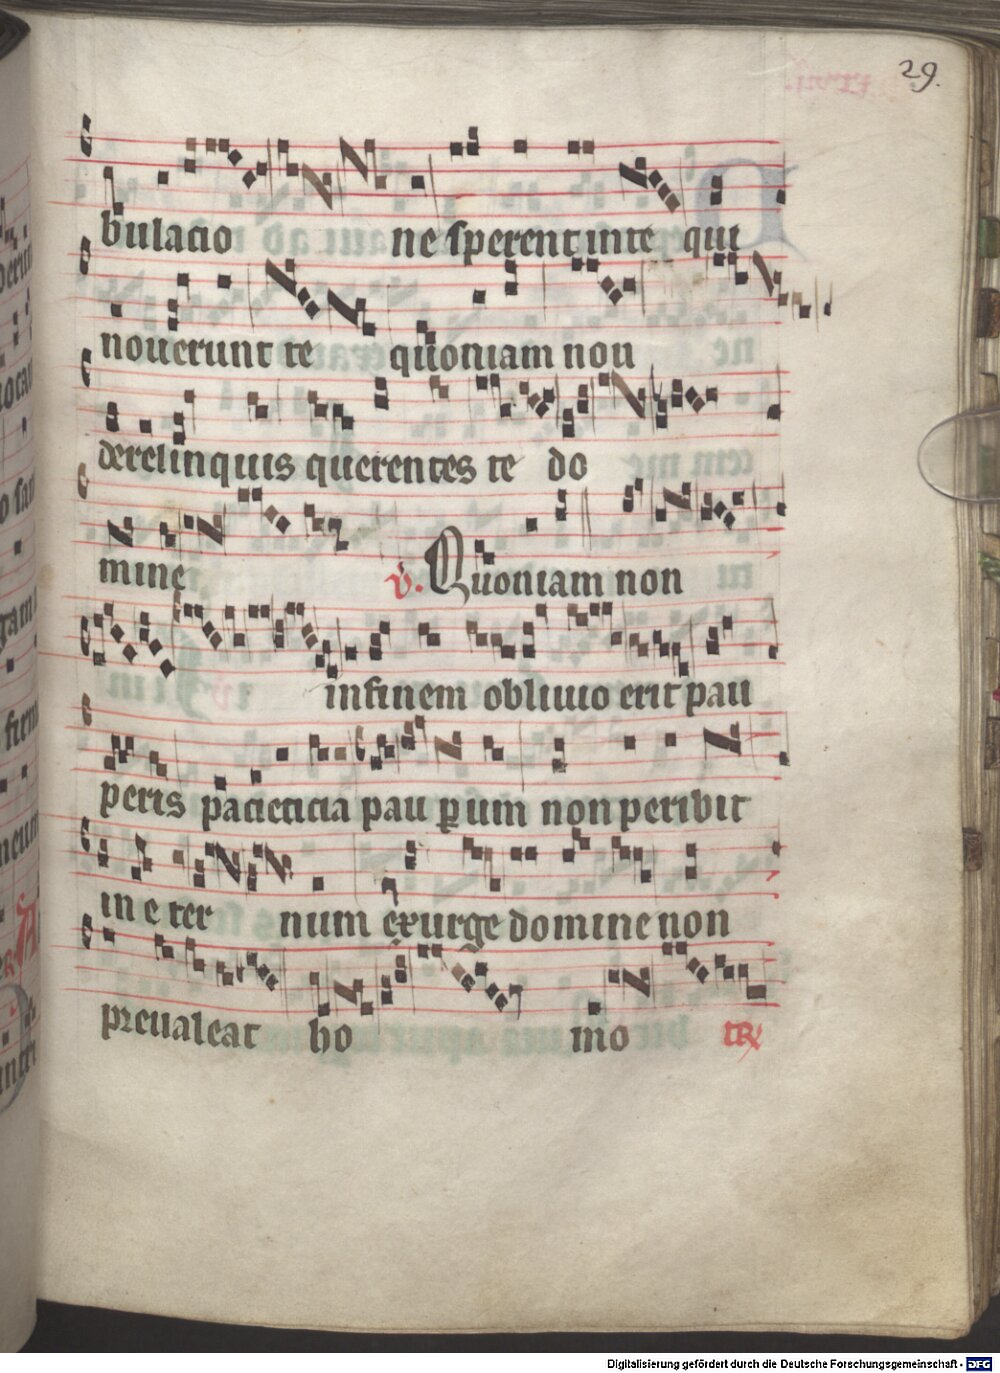 29.
bulacio ne sperent in te qui
nouerunt te quoniam non
derelinquis querentes te do
mine v. Quoniam non
in finem obliuio erit pau
peris paciencia pau perum non peribit
in e ter num exurge domine non
preualeat ho mo tR
Digitalisierung gefördert durch die Deutsche Forschungsgemeinschaft - DFG